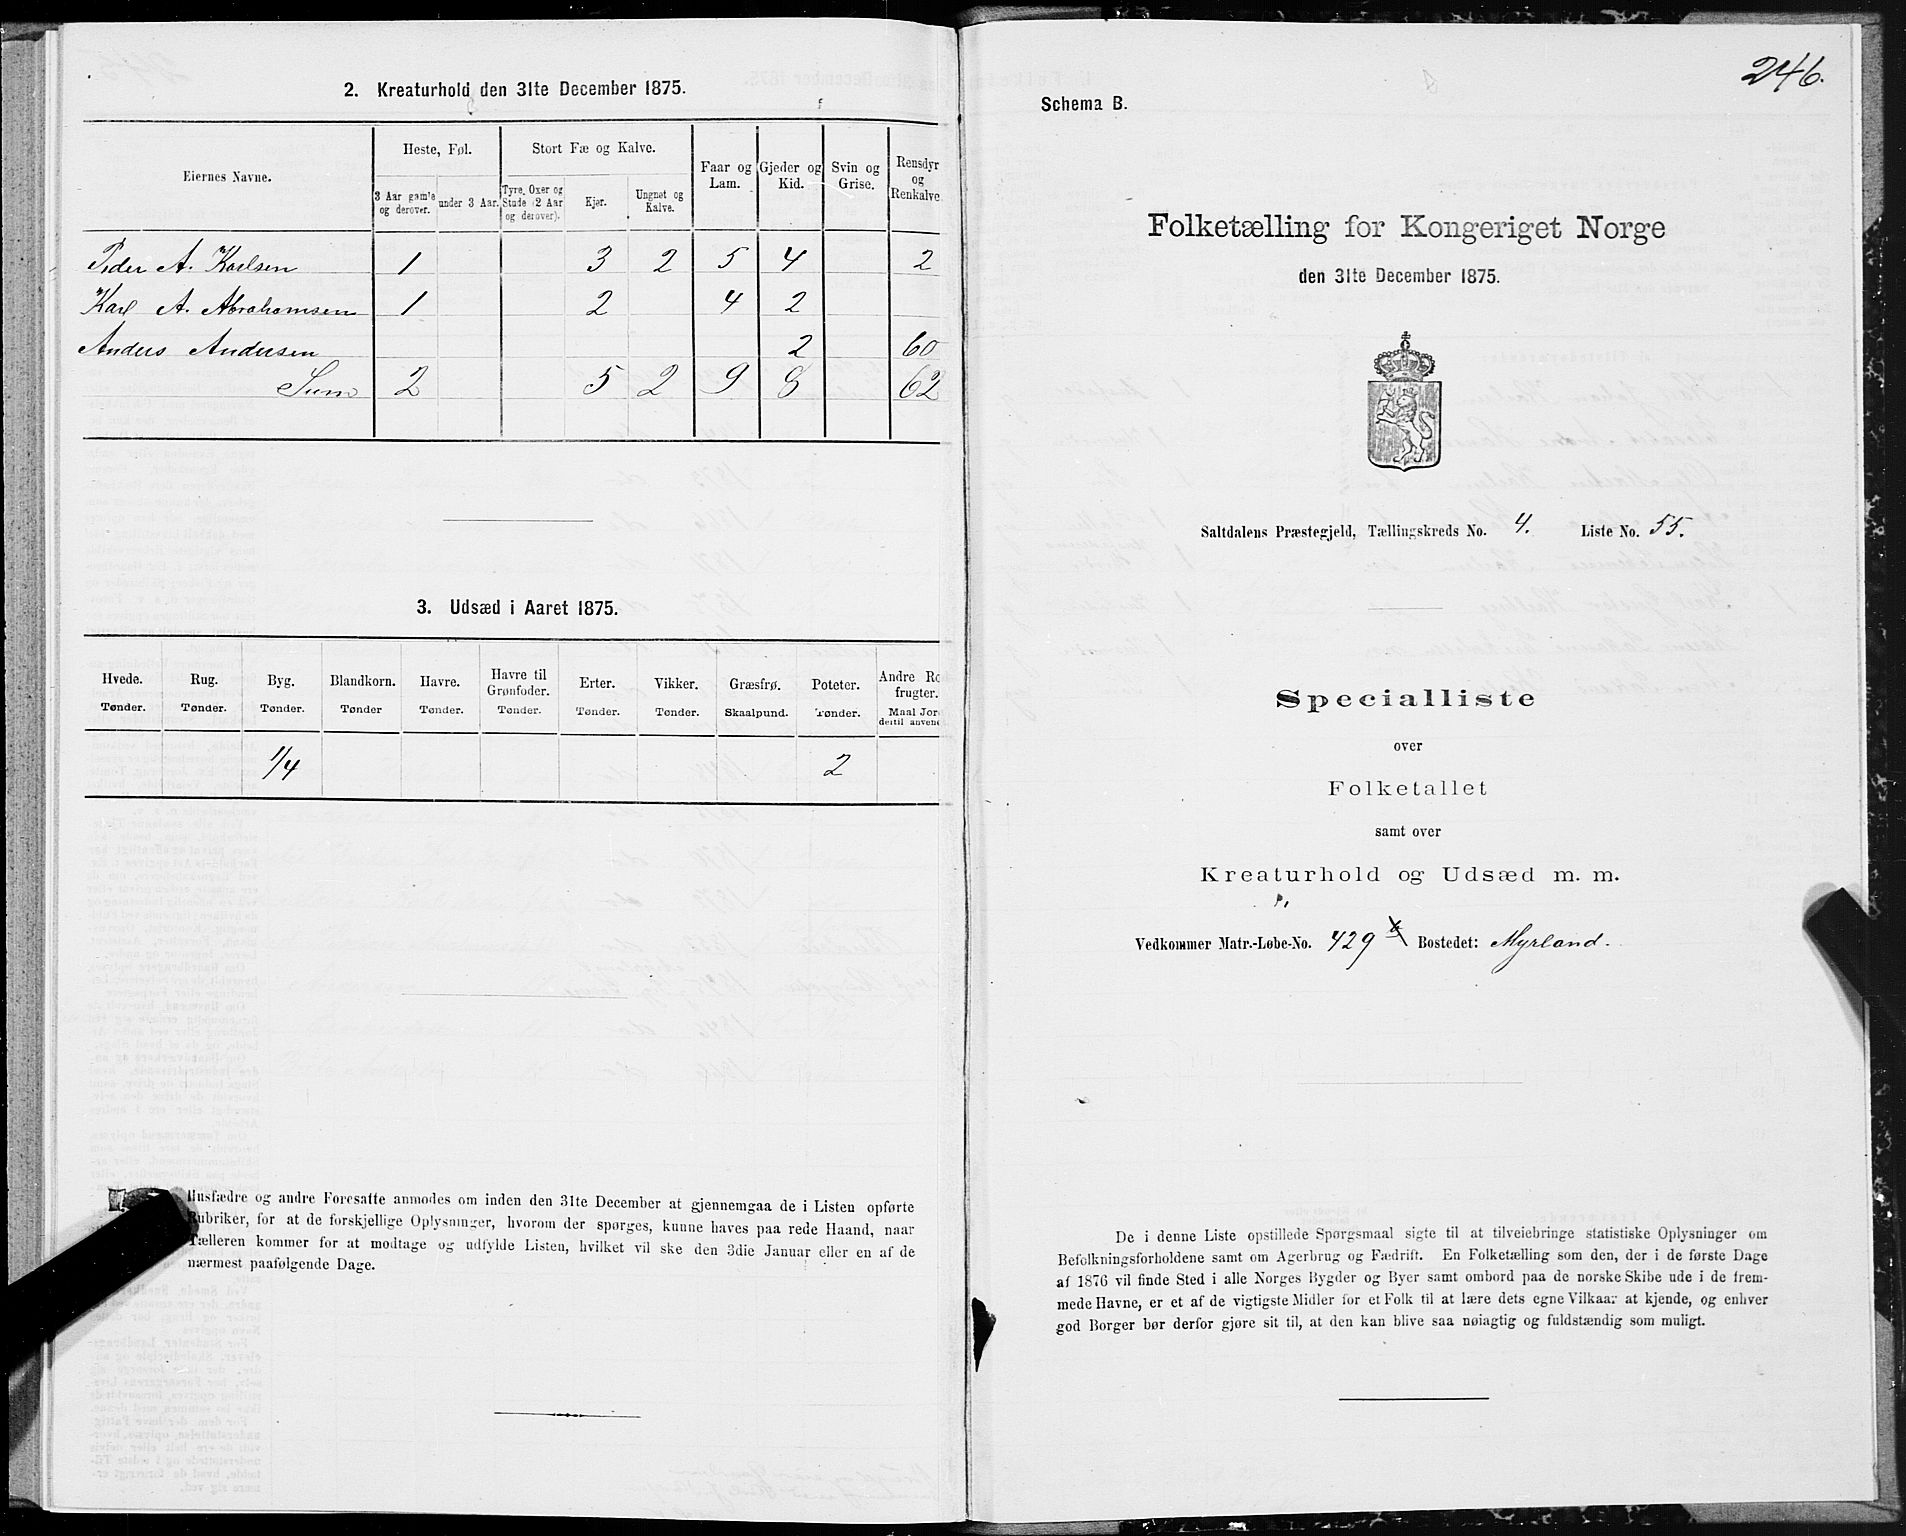 2. Kreaturhold den 31te December 1875.
Eiernes Navne.
Heste, Føl.
3 Aar gamle og derover.
under 3 Aar.
Stort Fæ og Kalve.
Tyre, Oxer og Stude (2 Aar og derover).
Kjør.
Ungnøt og Kalve.
Faar og Lam.
Gjeder og Kid.
Svin og Grise.
Rensdyr og Renkalve
Peder A. Karlsen 1 3 2 5 4 2
Karl A. Abrahamsen 1 2 4 2
Anders Andersen 2 60
Sum 2 5 2 9 8 62
3. Udsæd i Aaret 1875.
Hvede. Rug. Byg. Blandkorn. Havre. Havre til Grønfoder. Erter. Vikker. Græsfrø. Poteter. Andre Ro frugter.
Tønder. Tønder. Tønder. Tønder Tønder. Tønder. Tønder. Tønder. Skaalpund. Tønder. Maal Jor dertil anvend
1/4 2
Husfædre og andre Foresatte anmodes om inden den 31te December at gjennemgaa de i Listen opførte
Rubriker, for at de forskjellige Oplysninger, hvorom der spørges, kunne haves paa rede Haand, naar
Tælleren kommer for at modtage og udfylde Listen, hvilket vil ske den 3die Januar eller en af de
nærmest paafølgende Dage.
246.
Schema B.
Folketælling for Kongeriget Norge
den 31te December 1875.
Saltdalens Præstegjeld, Tællingskreds No. 4. Liste No. 55.
Specialliste
over
Folketallet
samt over
Kreaturhold og Udsæd m. m.
Vedkommer Matr.-Løbe-No. 429 Bostedet: Myrland.
De i denne Liste opstillede Spørgsmaal sigte til at tilveiebringe statistiske Oplysninger om
Befolkningsforholdene samt om Agerbrug og Fædrift. En Folketælling som den, der i de første Dage
af 1876 vil finde Sted i alle Norges Bygder og Byer samt ombord paa de norske Skibe ude i de frem-
mede Havne, er et af de vigtigste Midler for et Folk til at lære dets egne Vilkaar at kjende, og enhver
god Borger bør derfor gjøre sit til, at den kan blive saa nøiagtig og fuldstændig som muligt.